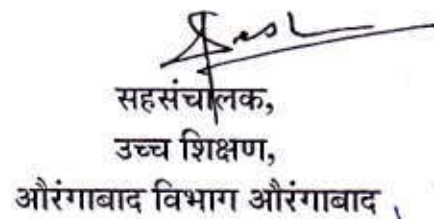 सहसंचालक,
उच्च शिक्षण,
औरंगाबाद विभाग औरंगाबाद